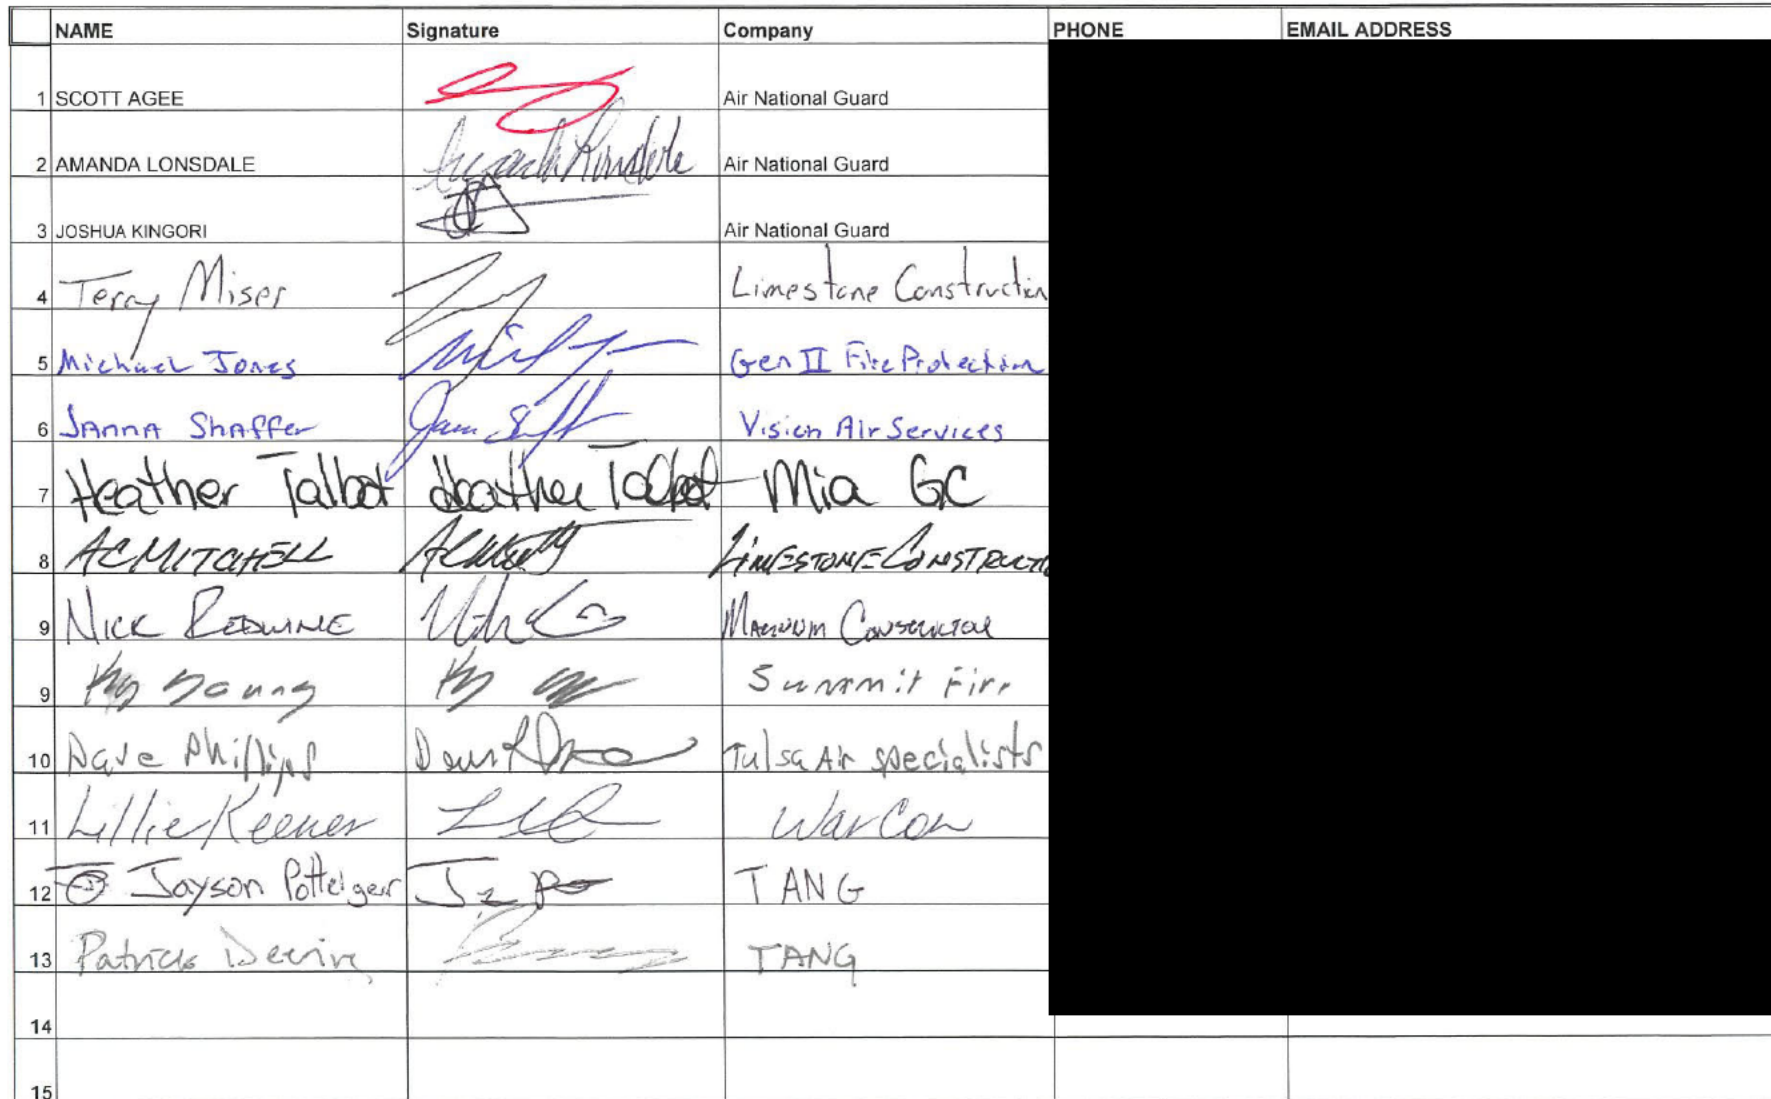 NAME Signature Company PHONE EMAIL ADDRESS
1 SCOTT AGEE Air National Guard
2 AMANDA LONSDALE Air National Guard
3 JOSHUA KINGORI Air National Guard
4 Terry Miser Limestone Construction
5 Michael Jones Gen II Fire Protection
6 Janna Shaffer Vision Air Services
7 Heather Talbot Heather Talbot Mia GC
8 AC MITCHELL LIMESTONE CONSTRUCTIO
9 NICK REDWINE MAGNUM CONSTRUCTION
9 Young Summit Fire
10 Dave Phillips Tulsa Air specialists
11 Lillie Keener WarCon
12 Jayson TANG
13 Patrick TANG
14
15